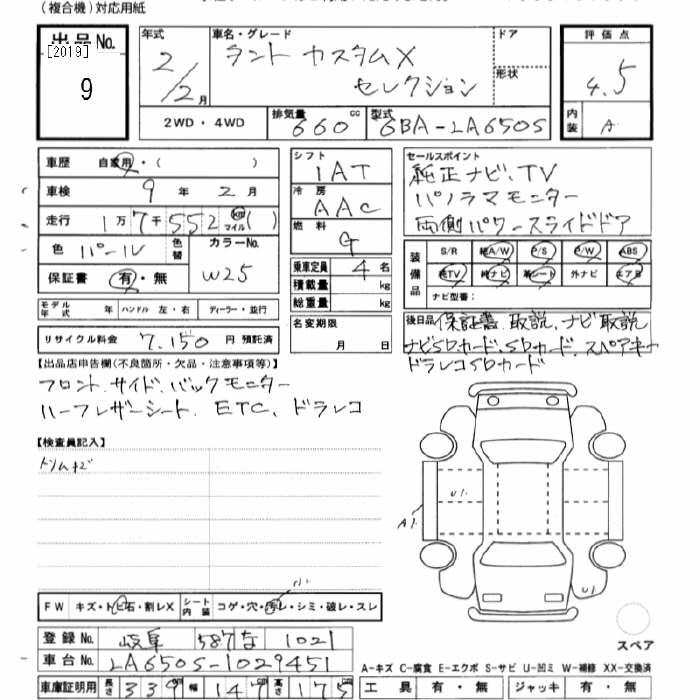 (複合機)対応用紙
出品No. [2019] 9
年式 2/2月
車名・グレード タント カスタムX セレクション
ドア
形状
評価点 4.5
内装 A
2WD・4WD
排気量 660 cc
型式 6BA-LA650S
車歴 自家用・( )
車検 9年2月
走行 1万7千552 km マイル ( )
色 パール 色替
カラーNo. W25
保証書 有・無
モデル年式 年 ハンドル 左・右 ディーラー・並行
リサイクル料金 7,150 円 預託済
シフト IAT
冷房 AAC
燃料 G
乗車定員 4名
積載量 kg
総重量 kg
名変期限 月 日
セールスポイント
純正ナビ、TV
パノラマモニター
両側パワースライドドア
装備品 S/R 純A/W P/S P/W ABS
純TV 純ナビ 革シート 外ナビ エアB
ナビ型番:
後日品 保証書、取説、ナビ取説
ナビSDカード、SDカード、スペアキー
ドラレコSDカード
【出品店申告欄(不良箇所・欠品・注意事項等)】
フロント、サイド、バックモニター
ハーフレザーシート、ETC、ドラレコ
【検査員記入】
ドリムキズ
A1
U1
U1
FW キズ・トビ石・割レX シート内装 コゲ・穴・汚レ・シミ・破レ・スレ
スペア
登録No. 岐阜 587 な 1021
車台No. LA650S-1029451
A-キズ C-腐食 E-エクボ S-サビ U-凹ミ W-補修 XX-交換済
車庫証明用 長さ 339 幅 147 高さ 175
工具 有・無 ジャッキ 有・無